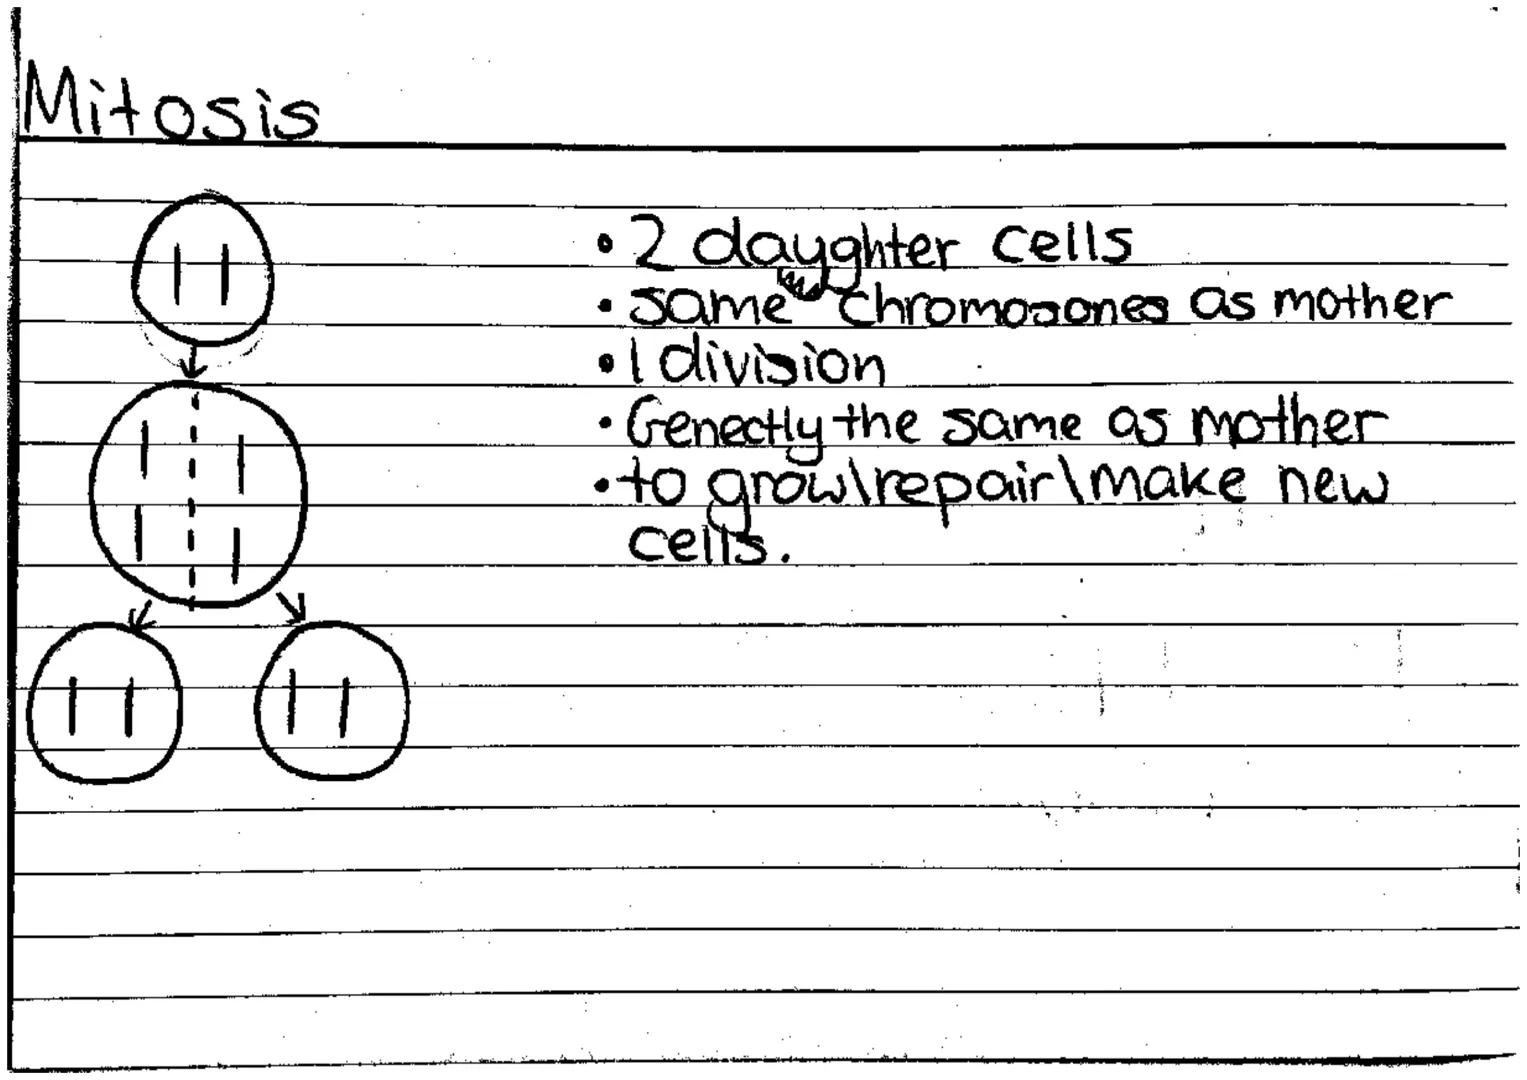 Mitosis
• 2 dayghter cells
• same chromosones as mother
• 1 division
• Genectly the same as mother
• to grow\repair\make new
cells.